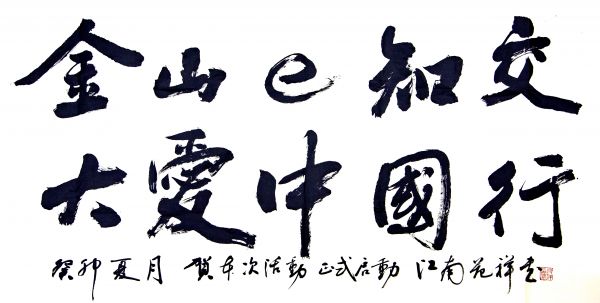 金山e知交
大愛中國行
癸卯夏月 賀本次活動正式启動 江南范祥